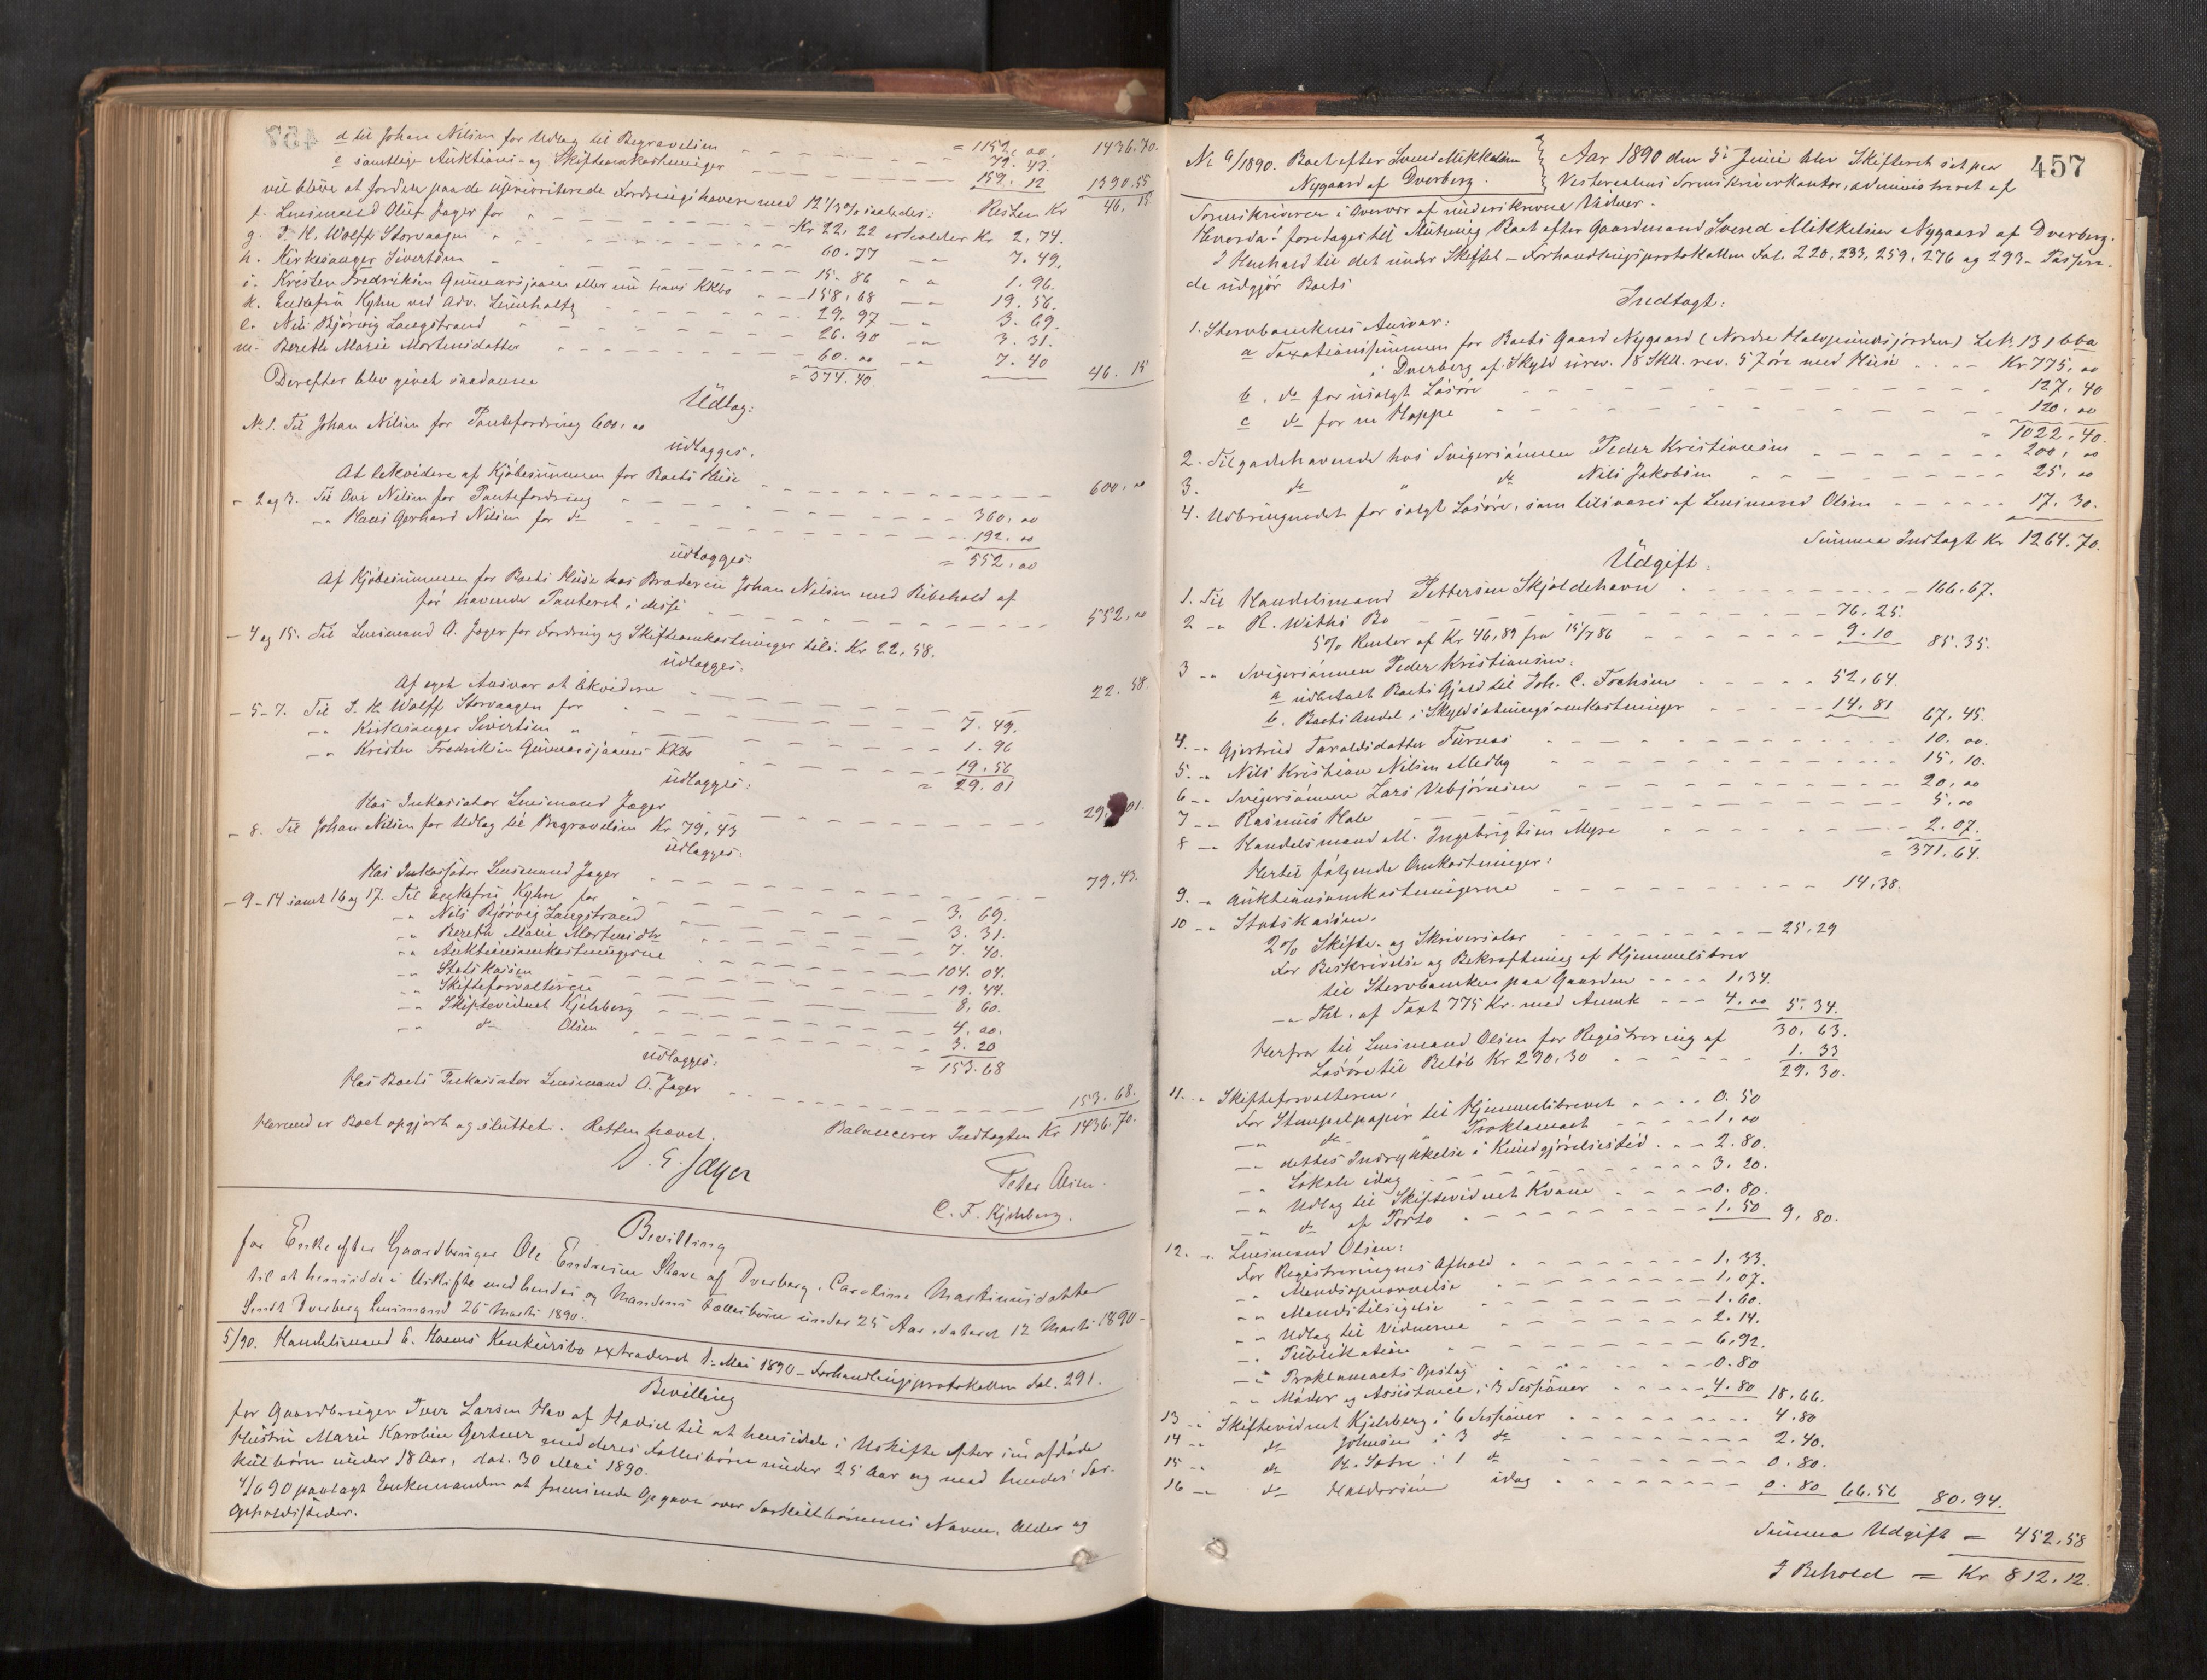 d til Johan Nilsen for Udlæg til Begravelsen - - - = 1152, 00. 1436.70.
e samtlige Auktions- og Skifteomkostninger - - - 79. 43.
159. 12 1390.55
vil blive at fordele paa de uprioriterede Fordringshavere med 12 1/3 % saaledes: Resten Kr 46. 15
f. Lensmand Oluf Jæger for - - - Kr 22, 22 erholder Kr 2, 74.
g. J. H. Wolff Storvaagen - - - 60. 77 - " 7. 49.
h. Kirkesanger Sivertsen - - - 15. 86 " " 1. 96.
i. Kristen Fredriksen Gunnarsjaaen eller nu hans KKbo - - 158, 68 - " 19. 56.
k. Enkefru Kyhn ved Adv. Lumholtz - - - 29. 97 - " 3. 69.
l. Nils Bjørvig Langstrand - - - 26. 90 - " 3. 31.
m. Bereth Marie Mortensdatter - - - 60. 00 - " 7. 40
= 374. 40. 46. 15
Derefter blev givet saadanne
Udlæg:
No 1. Til Johan Nilsen for Pantefordring 600, 00
udlægges.
At likvidere af Kjøbesummen for Boets Huse - - - 600, 00
- 2 og 3. Til Ove Nilsen for Pantefordring - - - 360, 00
-" Hans Gerhard Nilsen for do - - - 192. 00
= 552, 00
udlægges:
Af Kjøbesummen for Boets Huse hos Broderen Johan Nilsen med Bibehold af
før havende Panteret i disse - - - 552, 00
- 4 og 15. Til Lensmand O. Jæger for Fordring og Skifteomkostninger tils. Kr 22, 58.
udlægges:
Af eget Ansvar at likvidere - - - 22. 58.
- 5-7. Til J. H. Wolff Storvaagen for - - - 7. 49.
-" Kirkesanger Sivertsen " - - - 1. 96
-" Kristen Fredriksen Gunnarsjaaens KKbo - - - 19. 56
= 29. 01
udlægges:
Hos Inkassator Lensmand Jæger - - - 29. 01.
- 8. Til Johan Nilsen for Udlæg til Begravelsen Kr 79, 43
udlægges:
Hos Inkassator Lensmand Jæger - - - 79, 43.
- 9-14 samt 16 og 17. Til Enkefru Kyhn for - - - 3. 69.
-" Nils Bjørvig Langstrand - - - 3. 31.
-" Bereth Marie Mortensdtr - - - 7. 40.
-" Auktionsomkostningerne - - - 104. 04.
-" Statskassen - - - 19. 44.
-" Skifteforvalteren - - - 8, 60.
-" Skiftevidnet Kjelsberg - - - 4. 00.
-" do Olsen - - - 3. 20
= 153. 68
udlægges:
Hos Boets Inkassator Lensmand O. Jæger - - - 153. 68.
Balancerer Indtægten Kr 1436. 70.
Hermed er Boet opgjort og sluttet. Retten hævet.
O. E. Jæger
Peter Olsen.
C. F. Kjelsberg.
Bevilling
for Enke efter Gaardbruger Ole Endresen Stave af Dverberg, Caroline Martinusdatter
til at hensidde i Uskifte med hendes og Mandens Fællesbørn under 25 Aar, dateret 12 Marts 1890 -
Sendt Dverberg Lensmand 26 Marts 1890.
5/90. Handelsmand E. Haens Konkursbo extraderet 1. Mai 1890 - Forhandlingsprotokollen Fol. 291.
Bevilling
for Gaardbruger Iver Larsen Hav af Hadsel til at hensidde i Uskifte efter sin afdøde
Hustru Marie Karoline Gertner med deres Fællesbørn under 25 Aar og med hendes Sær-
kulbørn under 18 Aar, dat. 30 Mai 1890.
4/6 90 paalagt Enkemanden at fremsende Opgave over Særkulbørnenes Navne, Alder og
Opholdssteder.
457
No 6/1890. Boet efter Svend Mikkelsen
Nygaard af Dverberg.
Aar 1890 den 5. Juni blev Skifteret sat paa
Vesteraalens Sorenskriverkontor, administreret af
Sorenskriveren i Overvær af underskrevne Vidner.
Hvorda! foretoges til Slutning Boet efter Gaardmand Svend Mikkelsen Nygaard af Dverberg.
I Henhold til det under Skiftet - Forhandlingsprotokollen Fol. 220, 233, 259, 276 og 293 - Passere-
de udgjør Boets
Indtægt:
1. Stervboenkens Ansvar:
a Taxationssummen for Boets Gaard Nygaard (Nordre Halvpundsjorden) L.No 131 bba
i Dverberg af Skyld urev. 18 Skll. rev. 57 øre med Huse - - - Kr 775, 00
b. do for usolgt Løsøre - - - 127, 40
c do for en Hoppe - - - 120, 00
= 1022, 40.
2. Tilgodehavende hos Svigersønnen Peder Kristiansen - - - 200, 00
3. do " do Nils Jakobsen - - - 25, 00
4. Udbringendet for solgt Løsøre, som tilsvares af Lensmand Olsen - - - 17. 30.
Summa Indtægt Kr 1264. 70.
Udgift:
1. Til Handelsmand Pettersen Skjoldehavn - - - 166.67.
2 -" R. Withs Bo - - - 76. 25.
5 % Renter af Kr 46,89 fra 15/7 86 - - - 9. 10 85. 35.
3 -" Svigersønnen Peder Kristiansen:
a udbetalt Boets Gjæld til Joh. C. Fochsen - - - 52, 64.
b. Boets Andel i Skyldsætningsomkostninger - - - 14. 81 67. 45.
4. -" Gjertrud Taraldsdatter Turnes - - - 10. 00.
5. -" Nils Kristian Nilsen Medby - - - 15. 10.
6 -" Svigersønnen Lars Vebjørnsen - - - 20, 00
7 -" Rasmus Hole - - - 5, 00
8 -" Handelsmand M. Ingebrigtsen Myre - - - 2. 07.
= 371. 64.
Hertil følgende Omkostninger:
9. -" Auktionsomkostningerne - - - 14, 38.
10 -" Statskassen.
2 % Skifte- og Skriversalær - - - 25, 29
for Beskrivelse og Bekræftning af Hjemmelsbrev
til Stervboenken paa Gaarden - - - 1, 34.
-" Thl. af Taxt 775 Kr. med Anmk - - - 4, 00 5. 34.
30, 63.
Herfra til Lensmand Olsen for Registrering af
Løsøre til Beløb Kr 290, 30 - - - 1. 33
29. 30.
11. " Skifteforvalteren.
For Stempelpapir til Hjemmelsbrevet - - - 0. 50
-" do " Proklamaet - - - 1, 00
-" dettes Indrykkelse i Kundgjørelsestid. - - 2. 80.
-" Lokale idag - - - 3. 20.
-" Udlæg til Skiftevidnet Kvane - - - 0. 80.
-" do af Porto - - - 1. 50 9, 80.
12. -" Lensmand Olsen:
For Registreringens Afhold - - - 1, 33.
-" Mændsopnævnelse - - - 1, 07.
-" Mændstilsigelse - - - 1. 60.
-" Udlæg til Vidnerne - - - 2. 14.
-" Publikation - - - 6, 92.
-" Proklamaets Opslag - - - 0. 80
-" Møder og Assistance i 3 Sessioner - - - 4. 80 18, 66.
13 -" Skiftevidnet Kjelsberg i 6 Sessioner - - - 4. 80
14 -" do Johnsen i 3 do - - - 2. 40.
15 -" do H. Sætre i 1 do - - - 0. 80.
16 -" do Haldorsen idag - - - 0. 80 66. 56 80, 94.
Summa Udgift = 452, 58
I Behold = Kr 812, 12.